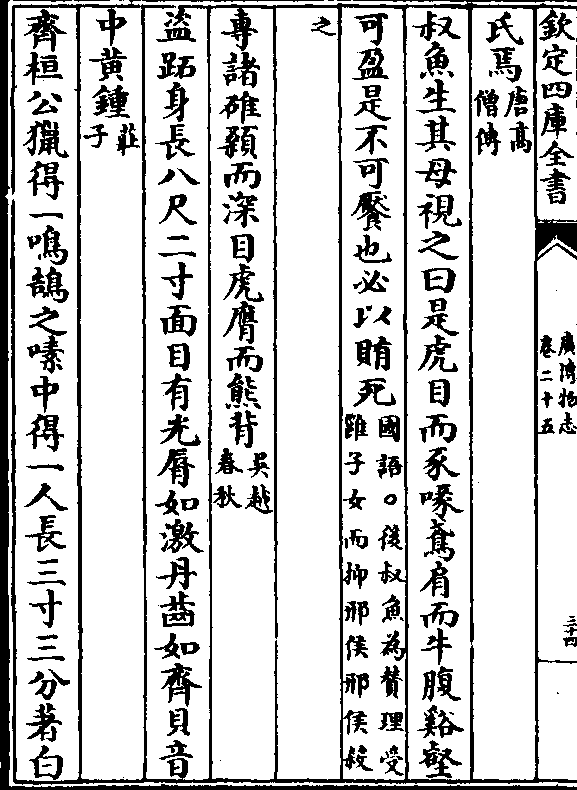 欽定四庫全書
廣博物志
卷二十五
三十四
氏焉唐高
僧傳
叔魚生其母視之曰是虎目而豕喙鳶肩而牛腹谿壑
可盈是不可饜也必以賄死國語。後叔魚為贊理受
雝子女而抑邢侯邢侯殺
之
專諸碓顙而深目虎膺而熊背吳越
春秋
盜跖身長八尺二寸面目有光脣如激丹齒如齊貝音
中黃鍾莊
子
齊桓公獵得一鳴鵠之嗉中得一人長三寸三分著白